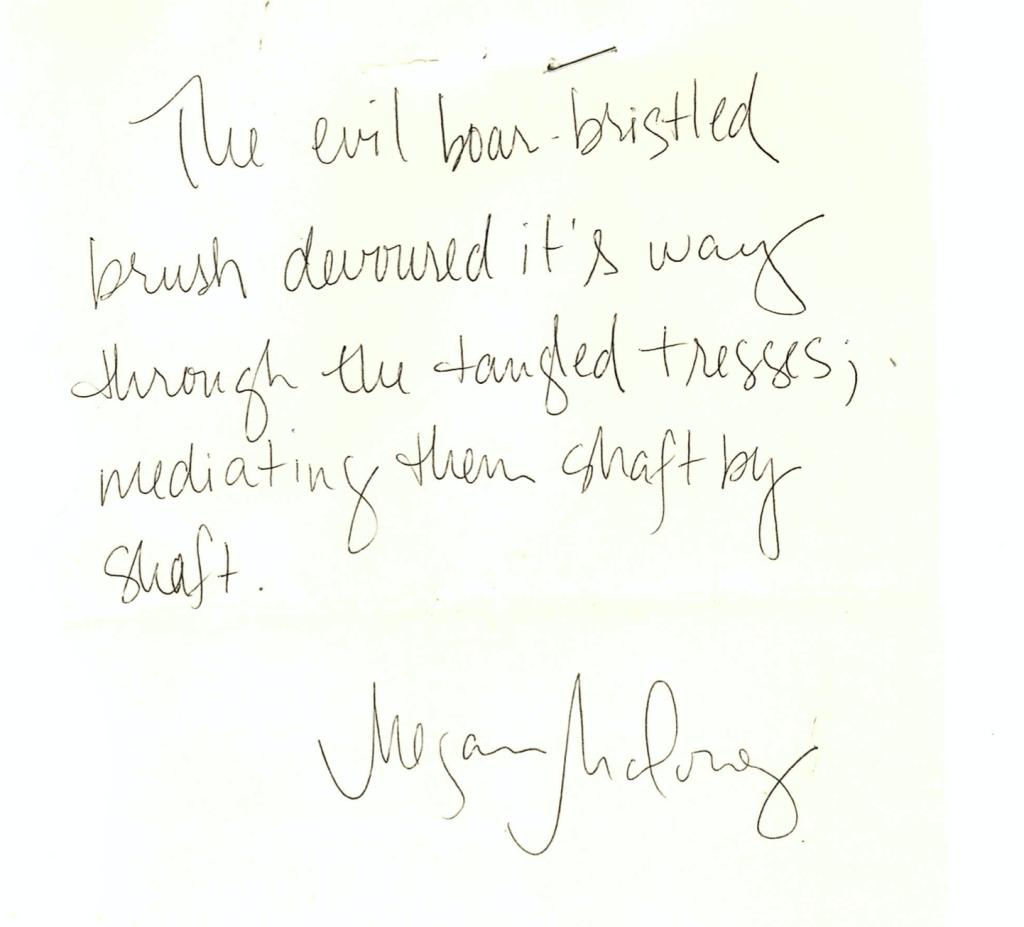 The evil boar-bristled
brush devoured it's way
through the tangled tresses;
mediating them shaft by
shaft.
Megan Maloney